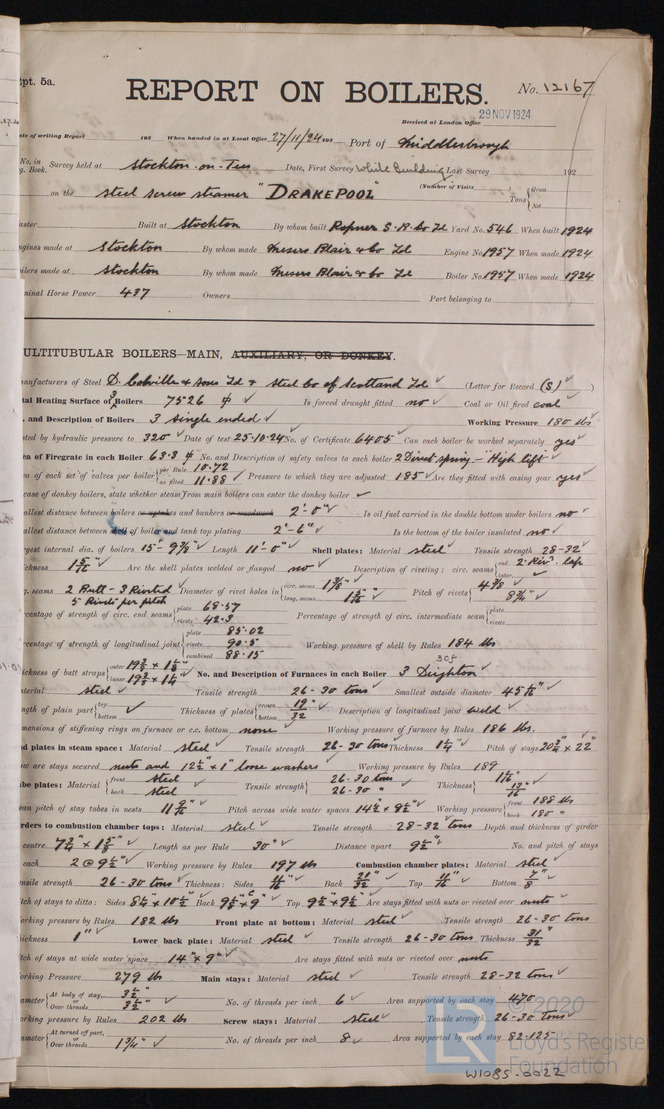 Rpt. 5a.
REPORT ON BOILERS.
No. 12167
Received at London Office 29 NOV 1924
Date of writing Report 192 When handed in at Local Office 27/11/24 192 Port of Middlesbrough
No. in Survey held at Stockton-on-Tees Date, First Survey While Building Last Survey 192
Book. (Number of Visits )
on the steel screw steamer "DRAKEPOOL" Tons { Gross Net
Master Built at Stockton By whom built Ropner S. B. Co Ld Yard No. 546 When built 1924
Engines made at Stockton By whom made Messrs Blair & Co Ld Engine No. 1957 When made 1924
Boilers made at Stockton By whom made Messrs Blair & Co Ld Boiler No. 1957 When made 1924
Nominal Horse Power 437 Owners Port belonging to
MULTITUBULAR BOILERS—MAIN, AUXILIARY, OR DONKEY.
Manufacturers of Steel D. Colville & Sons Ld & Steel Co of Scotland Ld (Letter for Record (S) )
Total Heating Surface of 3 Boilers 7526 Is forced draught fitted no Coal or Oil fired coal
No. and Description of Boilers 3 single ended Working Pressure 180 lbs
Tested by hydraulic pressure to 320 Date of test 25-10-24 No. of Certificate 6405 Can each boiler be worked separately yes
Area of Firegrate in each Boiler 63.3 No. and Description of safety valves to each boiler 2 Direct spring - "High lift"
Area of each set of valves per boiler { per Rule 10.72 as fitted 11.88 Pressure to which they are adjusted 185 Are they fitted with easing gear yes
In case of donkey boilers, state whether steam from main boilers can enter the donkey boiler
Smallest distance between boilers or uptakes and bunkers or woodwork 2'-0" Is oil fuel carried in the double bottom under boilers no
Smallest distance between shell of boiler and tank top plating 2'-6" Is the bottom of the boiler insulated no
Largest internal dia. of boilers 15'-9 7/8" Length 11'-0" Shell plates: Material steel Tensile strength 28-32
Thickness 1 5/16" Are the shell plates welded or flanged no Description of riveting: circ. seams { end 2 Riv. lap inter.
long. seams 2 Butt - 3 Riveted Diameter of rivet holes in { circ. seams 1 3/8" long. seams 1 5/16" Pitch of rivets { 4 3/8 8 3/4"
5 Rivets per pitch
Percentage of strength of circ. end seams { plate 68.57 rivets 42.3 Percentage of strength of circ. intermediate seam { plate rivets
Percentage of strength of longitudinal joint { plate 85.02 rivets 90.5 combined 88.15 Working pressure of shell by Rules 184 lbs
Thickness of butt straps { outer 19 3/8 x 1 1/8" inner 19 3/8 x 1 1/4" No. and Description of Furnaces in each Boiler 3 Deighton
Material steel Tensile strength 26-30 tons Smallest outside diameter 45 5/16"
Length of plain part { top bottom Thickness of plates { crown bottom 19/32" Description of longitudinal joint weld
Dimensions of stiffening rings on furnace or c.c. bottom none Working pressure of furnace by Rules 186 lbs.
End plates in steam space: Material steel Tensile strength 26-30 tons Thickness 1 1/4" Pitch of stays 20 3/4" x 22"
How are stays secured nuts and 12 1/2" x 1" loose washers Working pressure by Rules 189
Tube plates: Material { front steel back steel Tensile strength { 26-30 tons 26-30 " Thickness { 1 1/16" 13/16"
Mean pitch of stay tubes in nests 11 9/16" Pitch across wide water spaces 14 1/2" x 8 1/2" Working pressure { front 188 lbs back 180 "
Girders to combustion chamber tops: Material steel Tensile strength 28-32 tons Depth and thickness of girder
at centre 7 3/4" x 1 5/8" Length as per Rule 30" Distance apart 9 1/2" No. and pitch of stays
in each 2 @ 9 1/2" Working pressure by Rules 197 lbs Combustion chamber plates: Material steel
Tensile strength 26-30 tons Thickness: Sides 11/16" Back 21/32" Top 11/16" Bottom
Pitch of stays to ditto: Sides 8 1/4" x 10 1/2" Back 9 1/2" x 9" Top 9 1/2" x 9 1/2" Are stays fitted with nuts or riveted over nuts
Working pressure by Rules 182 lbs Front plate at bottom: Material steel Tensile strength 26-30 tons
Thickness 1" Lower back plate: Material steel Tensile strength 26-30 tons Thickness 31/32"
Pitch of stays at wide water space 14" x 9" Are stays fitted with nuts or riveted over nuts
Working Pressure 279 lbs Main stays: Material steel Tensile strength 28-32 tons
Diameter { At body of stay, 3 1/2" or Over threads 3 1/2" No. of threads per inch 6 Area supported by each stay 470
Working pressure by Rules 202 lbs Screw stays: Material steel Tensile strength 26-30 tons
Diameter { At turned off part, or Over threads 1 3/4" No. of threads per inch 8 Area supported by each stay 82.125
© 2020
Lloyd's Register
Foundation
W1085-0022